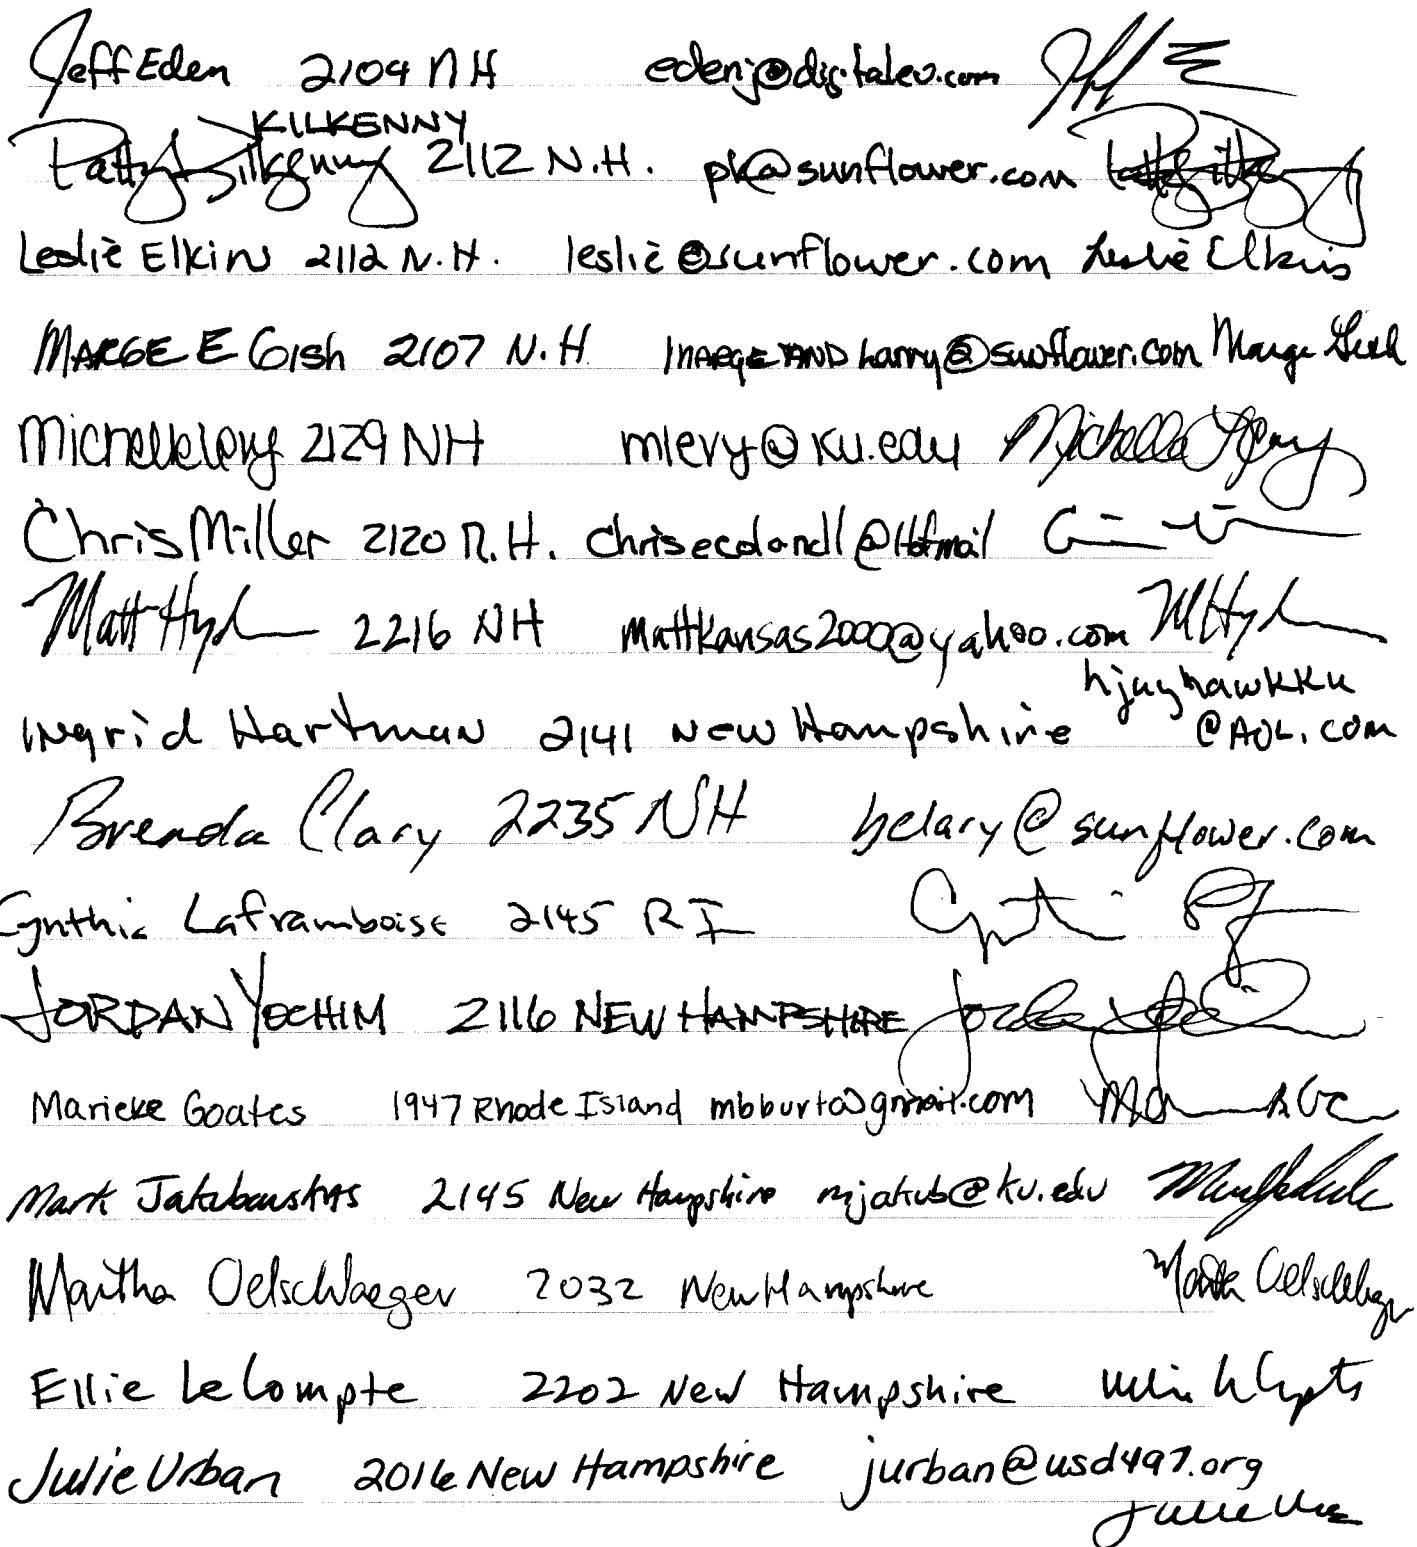 Jeff Eden 2104 NH edenj@digitalev.com
KILKENNY
Patty Kilkenny 2112 N.H. pk@sunflower.com
Leslie Elkins 2112 N.H. leslie@sunflower.com Leslie Elkins
MARGE E Gish 2107 N.H. MARGEANDLarry@sunflower.com Marge Gish
Michelle Levy 2129 NH mlevy@ku.edu Michelle Levy
Chris Miller 2120 N.H. @Hotmail
Matt 2216 NH mattkansas2000@yahoo.com
hjayhawkku
Ingrid Hartman 2141 New Hampshire @AOL.com
Brenda Clary 2235 NH bclary@sunflower.com
Cynthia Laframboise 2145 RI
JORDAN YOCHIM 2116 NEW HAMPSHIRE
Marieke Goates 1947 Rhode Island
Mark Jakubauskas 2145 New Hampshire mjakub@ku.edu
Martha Oelschlaeger 2032 New Hampshire Martha Oelschlaeger
Ellie LeCompte 2202 New Hampshire
Julie Urban 2016 New Hampshire jurban@usd497.org
Julie